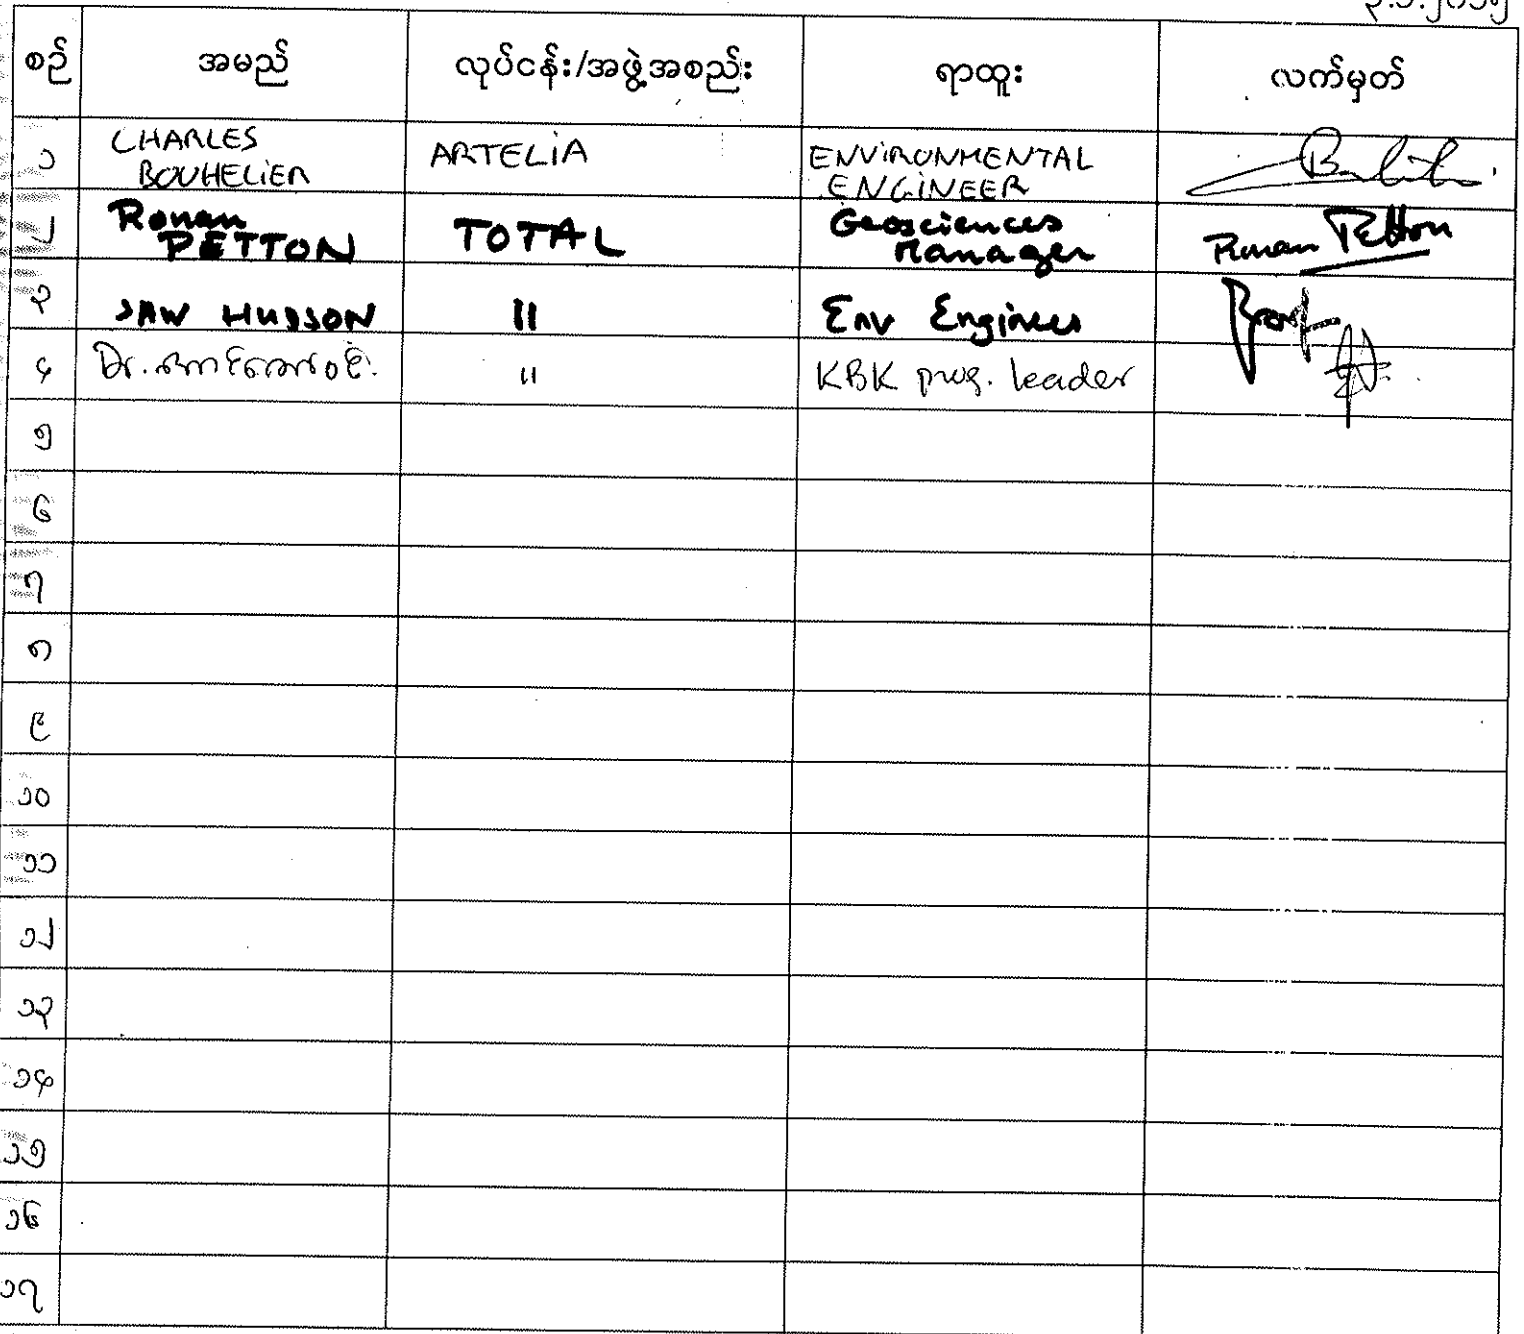 စဉ် အမည် လုပ်ငန်း/အဖွဲ့အစည်း ရာထူး လက်မှတ်
၁ CHARLES BOUHELIER ARTELIA ENVIRONMENTAL ENGINEER
၂ Ronan PETTON TOTAL Geosciences Manager Ronan Petton
၃ SAW HUDSON " Env Engineer
၄ Dr. " KBK prog. leader
၅
၆
၇
၈
၉
၁၀
၁၁
၁၂
၁၃
၁၄
၁၅
၁၆
၁၇